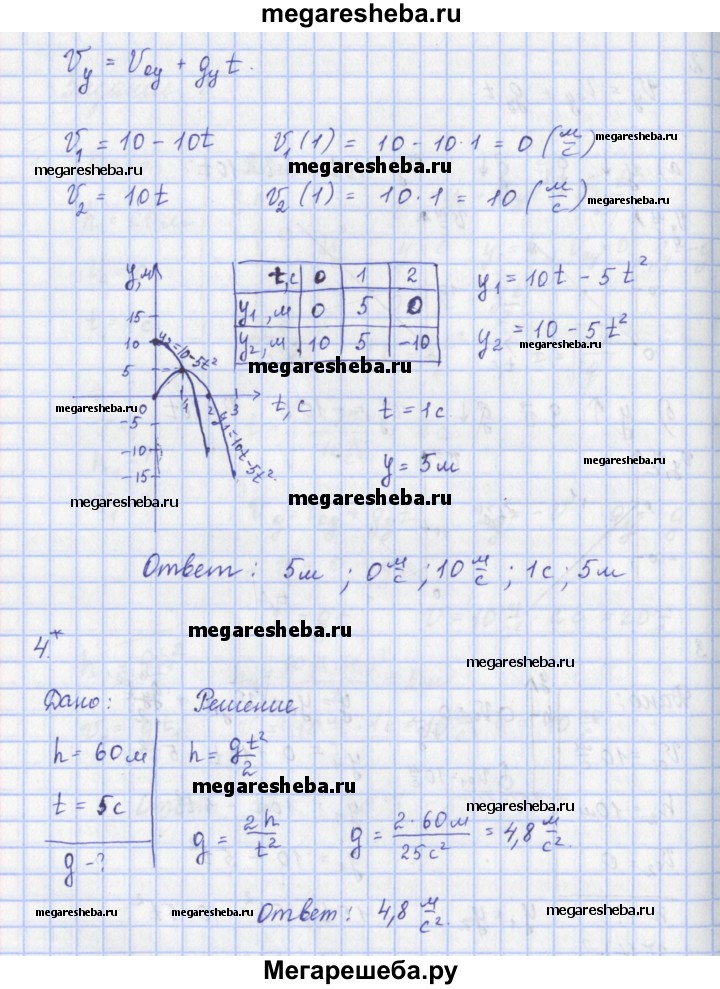 megaresheba.ru
Vy = V0y + gy t.
V1 = 10 - 10t V1(1) = 10 - 10·1 = 0 (м/с)
megaresheba.ru megaresheba.ru megaresheba.ru
V2 = 10t V2(1) = 10·1 = 10 (м/с)
megaresheba.ru
y,м
t,с 0 1 2
y1, м 0 5 0
y2, м 10 5 -10
y1 = 10t - 5t²
y2 = 10 - 5t²
megaresheba.ru
megaresheba.ru
15
10
5
0
-5
-10
-15
1 2 3
t, с
y2=10-5t²
y1=10t-5t².
megaresheba.ru
megaresheba.ru
t = 1с.
y = 5м
megaresheba.ru
megaresheba.ru
megaresheba.ru
Ответ: 5м ; 0 м/с ; 10 м/с ; 1с ; 5м
megaresheba.ru
4.*
megaresheba.ru
Дано: Решение
h = 60м h = gt²/2
megaresheba.ru
t = 5с
megaresheba.ru
g - ?
g = 2h/t² g = 2·60м/25с² = 4,8 м/с².
megaresheba.ru megaresheba.ru megaresheba.ru
Ответ: 4,8 м/с².
Мегарешеба.ру